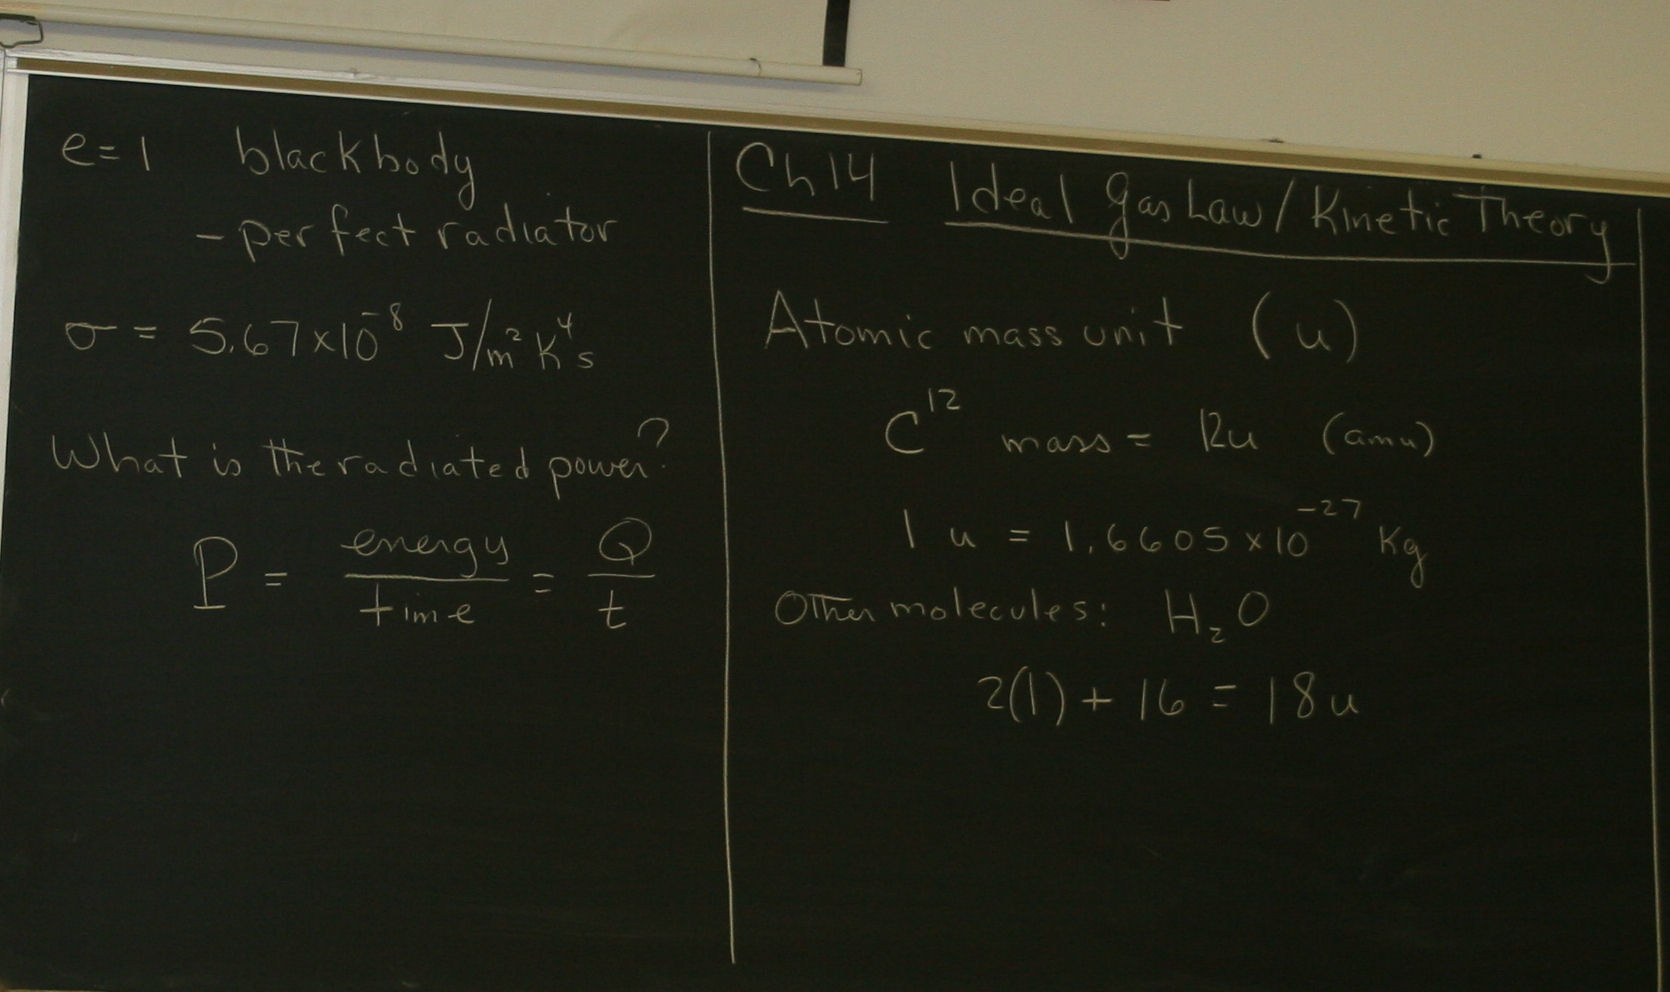 e=1 blackbody
- perfect radiator
σ = 5.67×10⁻⁸ J/m²K⁴s
What is the radiated power?
P = energy/time = Q/t
Ch 14 Ideal Gas Law / Kinetic Theory
Atomic mass unit (u)
C¹² mass = 12u (amu)
1 u = 1.6605×10⁻²⁷ Kg
Other molecules: H₂O
2(1) + 16 = 18u